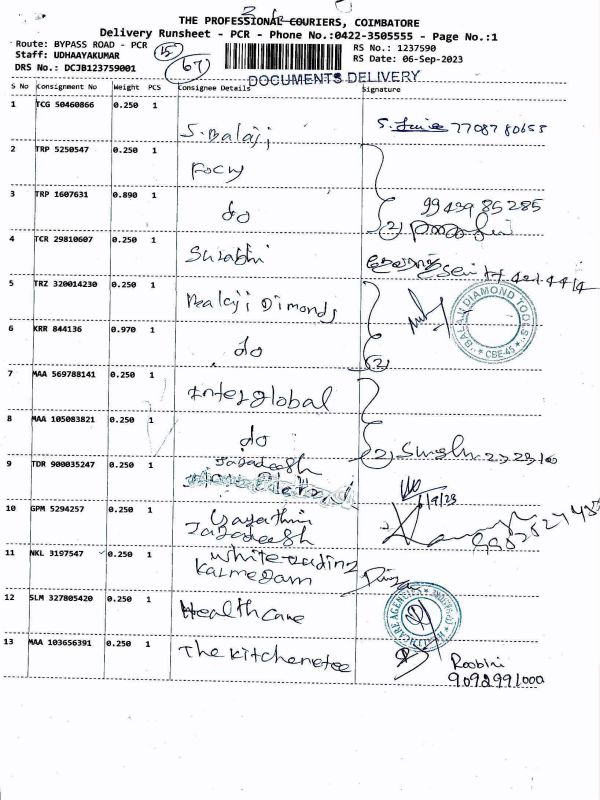 THE PROFESSIONAL COURIERS, COIMBATORE
Delivery Runsheet - PCR - Phone No.:0422-3505555 - Page No.:1
Route: BYPASS ROAD - PCR
RS No.: 1237590
Staff: UDHAAYAKUMAR
RS Date: 06-Sep-2023
DRS No.: DCJB123759001
15
67
DOCUMENTS DELIVERY
S No Consignment No Weight PCS Consignee Details Signature
1 TCG 50460866 0.250 1 S. Balaji 7708780655
2 TRP 5250547 0.250 1 Focus
3 TRP 1607631 0.890 1 do (2) 9943985285
4 TCR 29810607 0.250 1 Surabhi
5 TRZ 320014230 0.250 1 Balaji Dimonds
BALAJI DIAMOND TOOLS * CBE-45 *
6 KRR 844136 0.970 1 do (2)
7 MAA 569788141 0.250 1 Interglobal
8 MAA 105083821 0.250 1 do (2)
9 TDR 900035247 0.250 1 Jagadeesh
10 GPM 5294257 0.250 1 Gayathri Jagadeesh
11 NKL 3197547 0.250 1 White
12 SLM 327805420 0.250 1 Healthcare
13 MAA 103656391 0.250 1 The Kitchenetee Roobini
9092991000